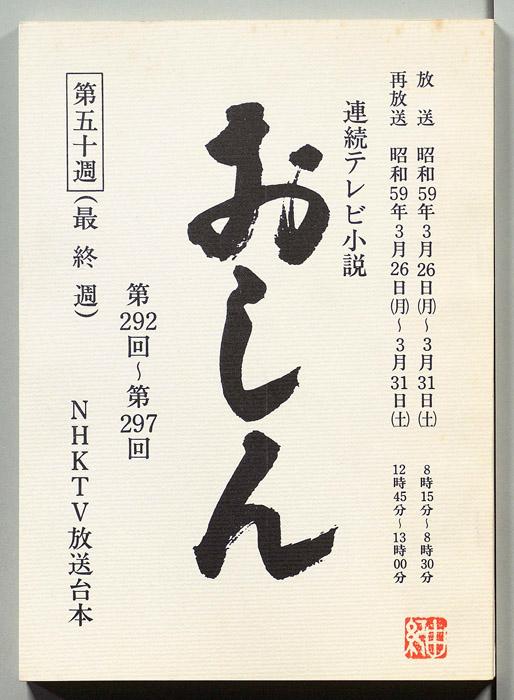 放送 昭和59年3月26日(月)~3月31日(土) 8時15分~8時30分
再放送 昭和59年3月26日(月)~3月31日(土) 12時45分~13時00分
連続テレビ小説
おしん
第292回~第297回
第五十週(最終週)
NHKTV放送台本